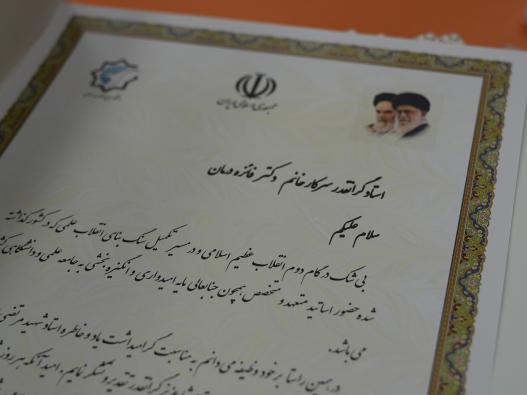 جمهوری اسلامی ایران
استاد گرانقدر سرکار خانم دکتر فائزه درمان
سلام علیکم
بی شک در گام دوم انقلاب عظیم اسلامی و در مسیر تکمیل سنگ بنای انقلاب علمی که در کشور گذاشته
شده حضور اساتید متعهد و متخصص همچون جنابعالی مایه امیدواری و انگیزه بخشی به جامعه علمی و دانشگاهی
می باشد.
در همین راستا بر خود وظیفه می دانم به مناسبت گرامیداشت یاد و خاطره استاد شهید مرتضی
گرانقدر تقدیر و تشکر نمایم. امید آنکه هر روز